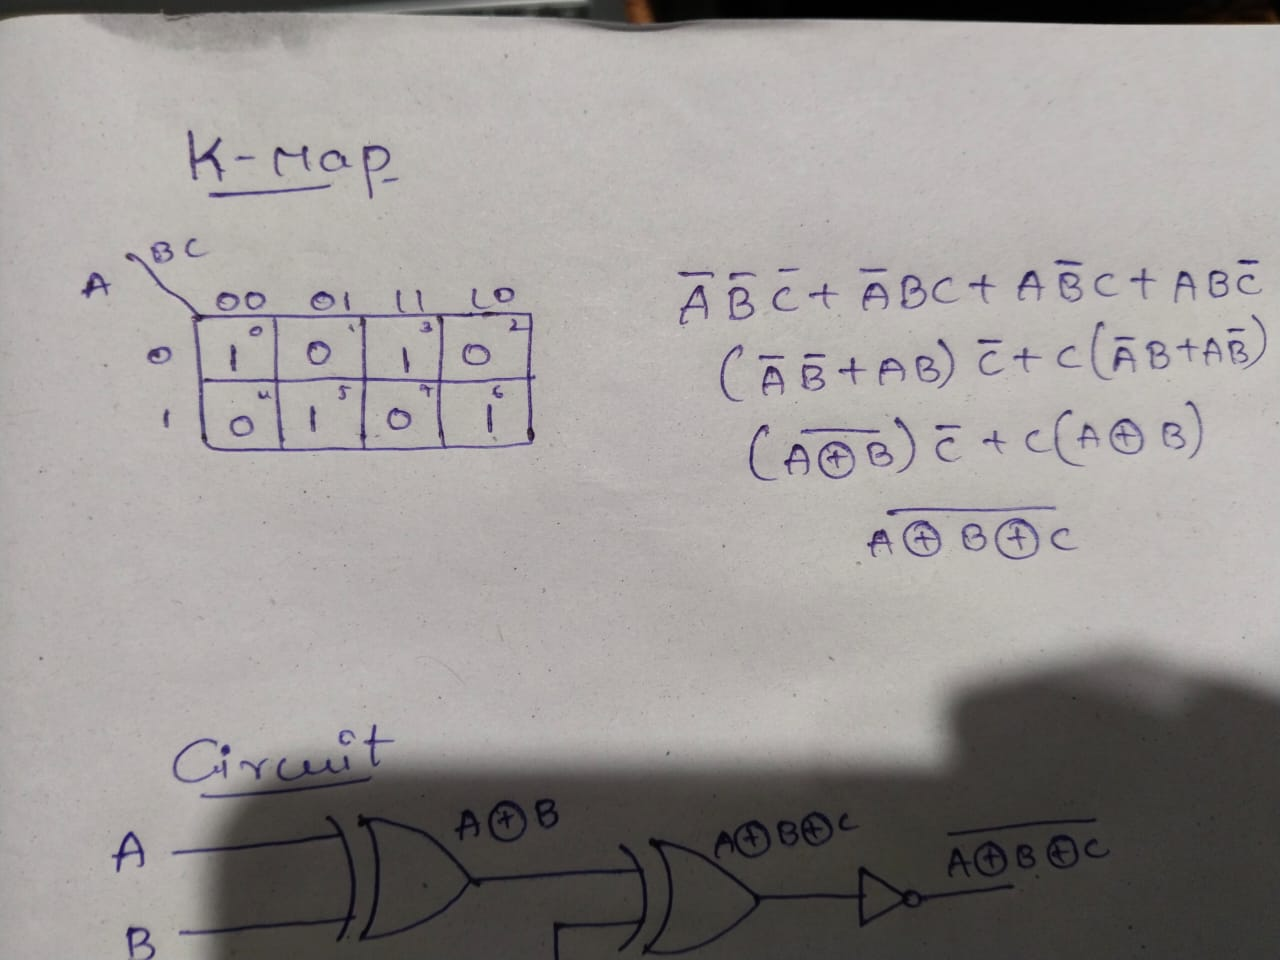 K-Map
BC
A
00 01 11 10
0 1 0 0 1 1 3 0 2
1 0 4 1 5 0 7 1 6
A̅ B̅ C̅ + A̅BC + AB̅C + ABC̅
(A̅ B̅ + AB) C̅ + C(A̅B + AB̅)
(A̅ ⊕̅ B̅) C̅ + C(A ⊕ B)
A̅ ⊕̅ B̅ ⊕̅ C̅
Circuit
A⊕B
A⊕B⊕C
A̅⊕̅B̅⊕̅C̅
A
B